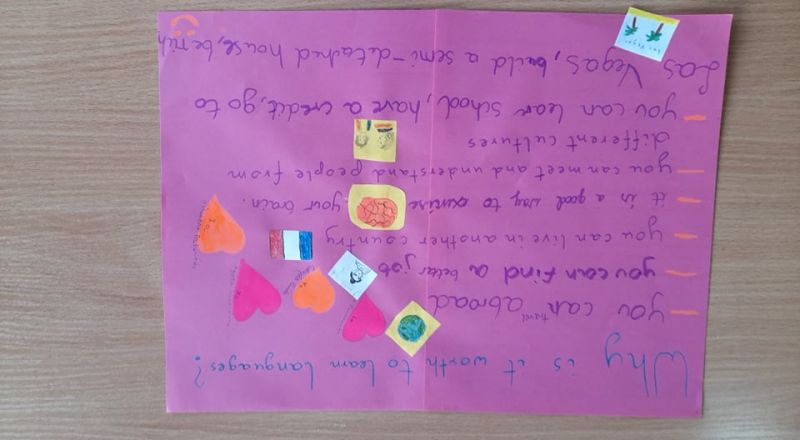 Why is it worth to learn languages?
you can travel abroad
you can find a better job
you can live in another country
it is a good way to exercise your brain.
you can meet and understand people from
different cultures
you can lear school, have a credit, go to
Las Vegas, build a semi-detached house, be rich
Las Vegas